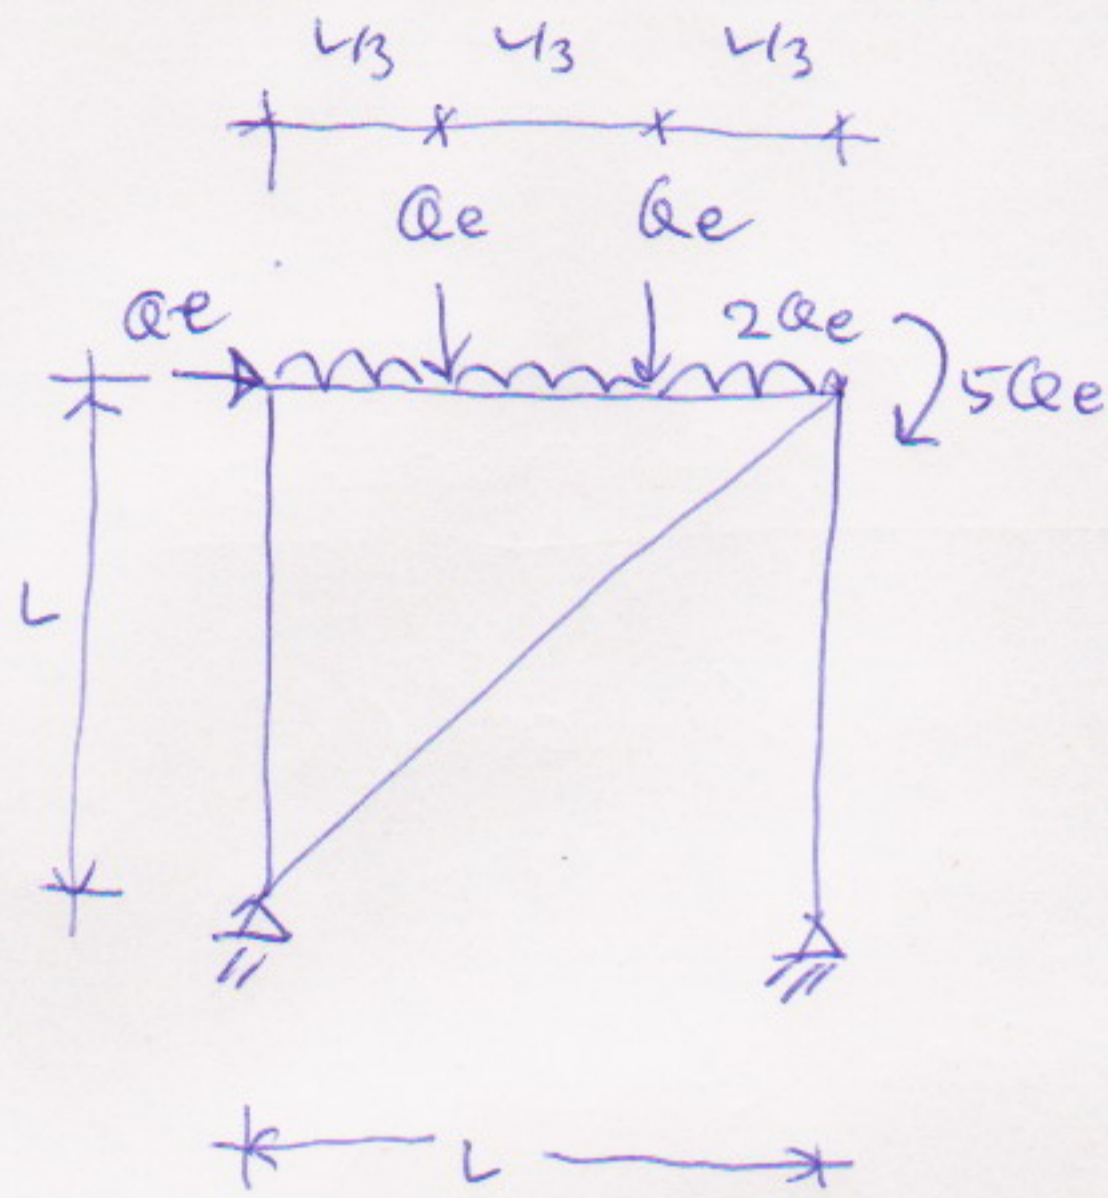 L/3 L/3 L/3
Qe Qe
Qe 2Qe
5Qe
L
L